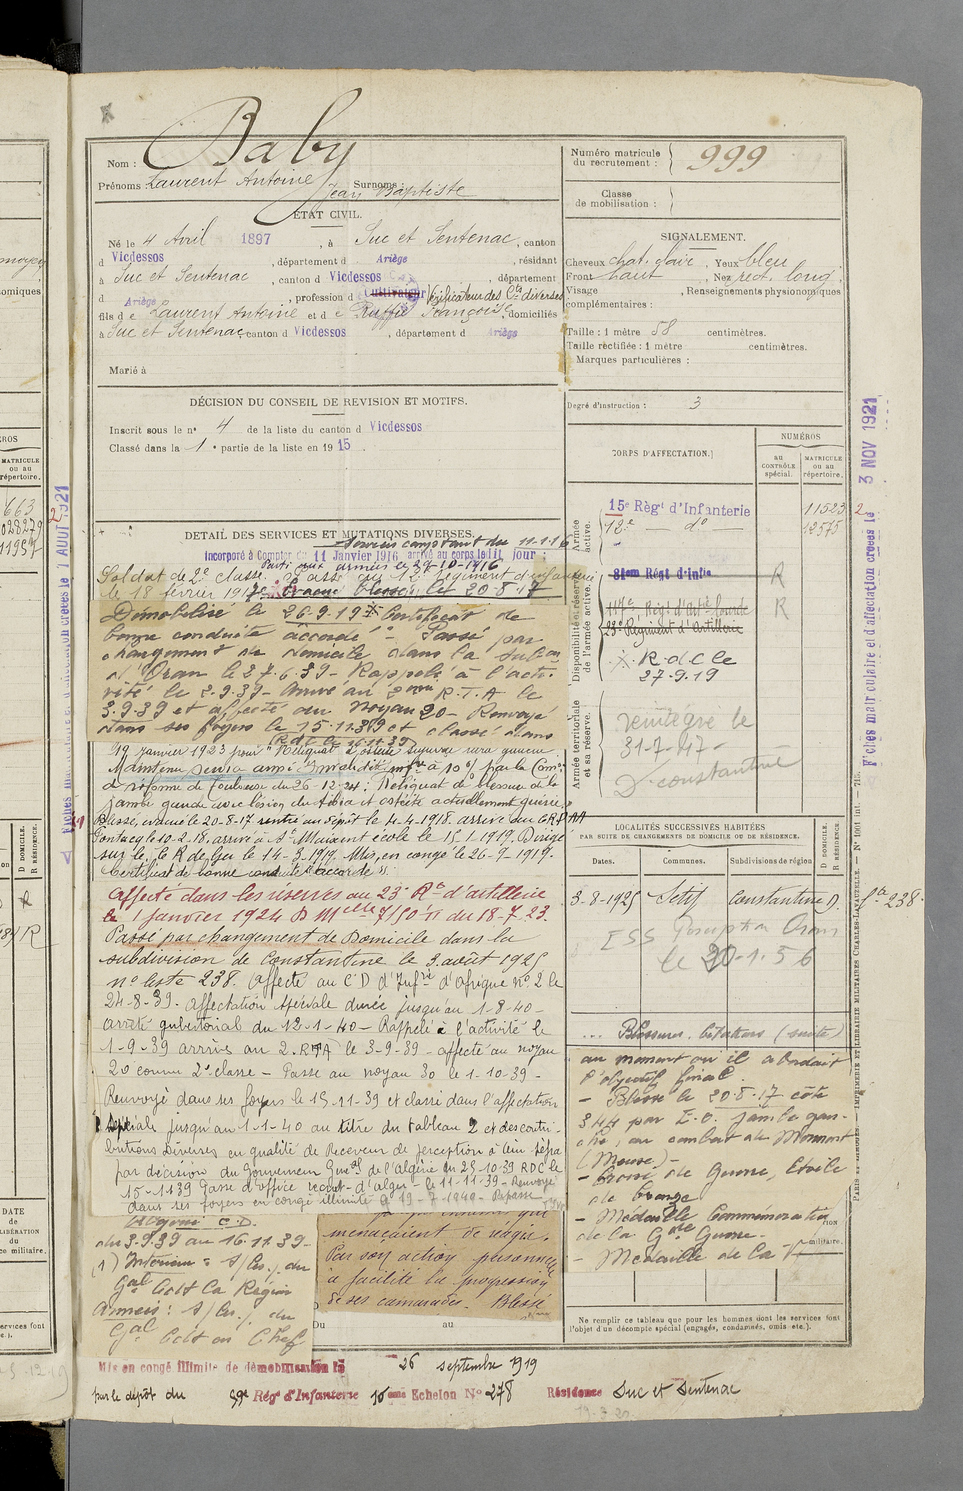 Nom : Baby
Prénoms : Laurent Antoine Jean Baptiste Surnoms :
ÉTAT CIVIL.
Né le 4 Avril 1897, à Suc et Sentenac, canton
d Vicdessos, département d Ariège, résidant
à Suc et Sentenac, canton d Vicdessos, département
d Ariège, profession d Cultivateur Vérificateur des Cts diverses
fils de Laurent Antoine et de Ruffié Françoise, domiciliés
à Suc et Sentenac, canton d Vicdessos, département d Ariège
Marié à
DÉCISION DU CONSEIL DE REVISION ET MOTIFS.
Inscrit sous le n° 4 de la liste du canton d Vicdessos
Classé dans la 1e partie de la liste en 1915.
DÉTAIL DES SERVICES ET MUTATIONS DIVERSES.
Services comptant du 11-1-16
Incorporé à Compter du 11 Janvier 1916 arrivé au corps ledit jour :
Parti aux armées le 27-10-1916
Soldat de 2e classe. Passé au 12e Régiment d'infanterie
le 18 février 1917. Evacué blessé le 20-8-17
Démobilisé le 26-9-19 Certificat de
bonne conduite accordé - Passé par
changement de domicile dans la subdon
d'Oran le 27-6-39 - Rappelé à l'acti-
vité le 2-9-39 - Arrivé au 2ème R.T.A le
3.9.39 et affecté au Noyau 20 - Renvoyé
dans ses foyers le 15.11.39 et classé dans
(RdC le 16.11.39)
19 Janvier 1923 pour
Maintenu service armé Invalidité infre à 10% par la Comon
de réforme de Toulouse du 26-12-24 : Reliquat de blessure de la
jambe gauche avec lésion du tibia et ostéite actuellement guérie.
Blessé, évacué le 20-8-17 rentré au dépôt le 4-4-1918. arrivé au C.R.
Pontacq le 10-2-18. arrivé à St Maixent école le 15-1919. Dirigé
sur le 1er R de Gu le 14-3-1919. Mis en congé le 26-9-1919.
Certificat de bonne conduite "accordé".
Affecté dans les réserves au 23e Rt d'artillerie
le 1 janvier 1924 D Melle 7150-II du 18-7-23.
Passé par changement de Domicile dans la
subdivision de Constantine le 3 août 1925
n° liste 238. Affecté au C D d'Infrie d'Afrique n° 2 le
24-8-39. Affectation spéciale durée jusqu'au 1-8-40-
arrêté gubertorial du 12-1-40 - Rappelé à l'activité le
1-9-39 arrivé au 2. RTA le 3-9-39 - affecté au noyau
20 comme 2e classe - Passé au noyau 30 le 1-10-39 -
Renvoyé dans ses foyers le 15-11-39 et classé dans l'affectation
spéciale jusqu'au 1-1-40 au titre du tableau 2 et des contri-
butions Diverses en qualité de Receveur de perception à
par décision du Gouverneur Général de l'algérie du 25-10-39 RDC le
15-11-39 Passé d'office recrut- d'alger - le 11-11-39 - Renvoyé
dans ses foyers en congé illimité le 19-7-1940 - Repassé
C.D.
du 3.9.39 au 16.11.39 -
(1) Intérieur : s/les. du
Gal Cdt la Région
Armées : s/les. du
Gal Cdt en Chef
menaçaient de réagir.
Par son action personnelle
a facilité la progression
de ses camarades. Blessé
Du au
Mis en congé illimité de démobilisation le 26 septembre 1919
par le dépôt du 59e Rég' d'Infanterie 10ème Echelon N° 278 Résidence Suc et Sentenac
Numéro matricule du recrutement : 999
Classe de mobilisation :
SIGNALEMENT.
Cheveux chat. clair, Yeux bleu
Front haut, Nez rect. long
Visage Renseignements physionomiques
complémentaires :
Taille : 1 mètre 58 centimètres.
Taille rectifiée : 1 mètre centimètres.
Marques particulières :
Degré d'instruction : 3
CORPS D'AFFECTATION.
NUMÉROS
AU CONTRÔLE SPÉCIAL.
MATRICULE OU AU RÉPERTOIRE.
Armée active.
15e Règt d'Infanterie 11523
12e do 12575
Disponibilité et réserve de l'armée active.
81em Régt d'Infie R
117e Régt d'Artie lourde R
23e Régiment d'Artillerie
R.d.C le
27.9.19
Armée territoriale et sa réserve.
réintégré le
31-7-47-
D. Constantine
LOCALITÉS SUCCESSIVES HABITÉES
PAR SUITE DE CHANGEMENTS DE DOMICILE OU DE RÉSIDENCE.
Dates. Communes. Subdivisions de région D DOMICILE. R RÉSIDENCE.
3-8-1925 Sétif Constantine D.
ESS Oran
le 20-1-56
Blessures. Citations (suite)
au moment où il abordait
l'objectif final
- Blessé le 20-8-17 côte
344 par E.O. jambe gau-
che, au combat de Mormont
(Meuse) -
- Croix de Guerre, Etoile
de bronze
- Médaille Commémorative
de la Gde Guerre -
- Médaille de la V-
militaire.
Ne remplir ce tableau que pour les hommes dont les services font
l'objet d'un décompte spécial (engagés, condamnés, omis etc.).
Fiches matriculaire et d'affectation créées le 3 NOV 1921
PARIS ET LIMOGES. — IMPRIMERIE ET LIBRAIRIE MILITAIRES CHARLES-LAVAUZELLE. — N° 1001 int. — 715.
MATRICULE ou au répertoire.
663
11957
R
D DOMICILE.
R RÉSIDENCE.
DATE de LIBÉRATION du service militaire.